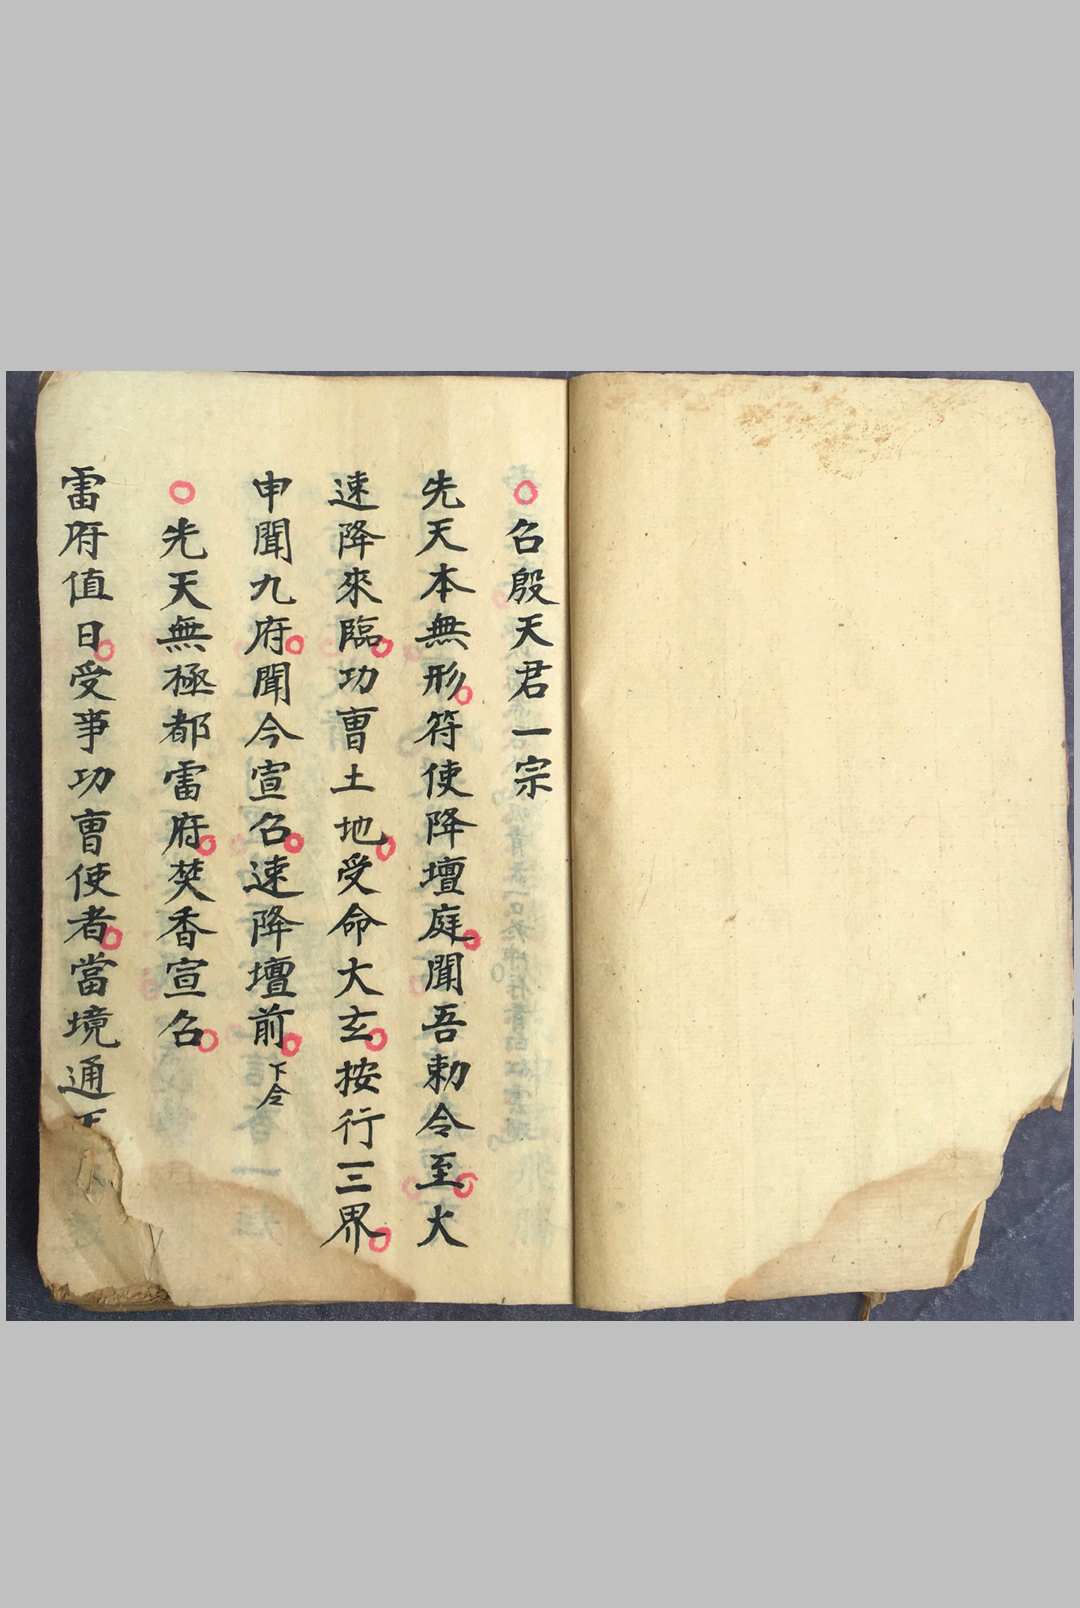 ○召殷天君一宗
先天本無形○符使降壇庭○聞吾勅令至○火
速降來臨○功曹土地○受命大玄○按行三界○
申聞九府○聞今宣召○速降壇前○下令
○先天無極都雷府○焚香宣召○
雷府值日○受事功曹使者○當境通